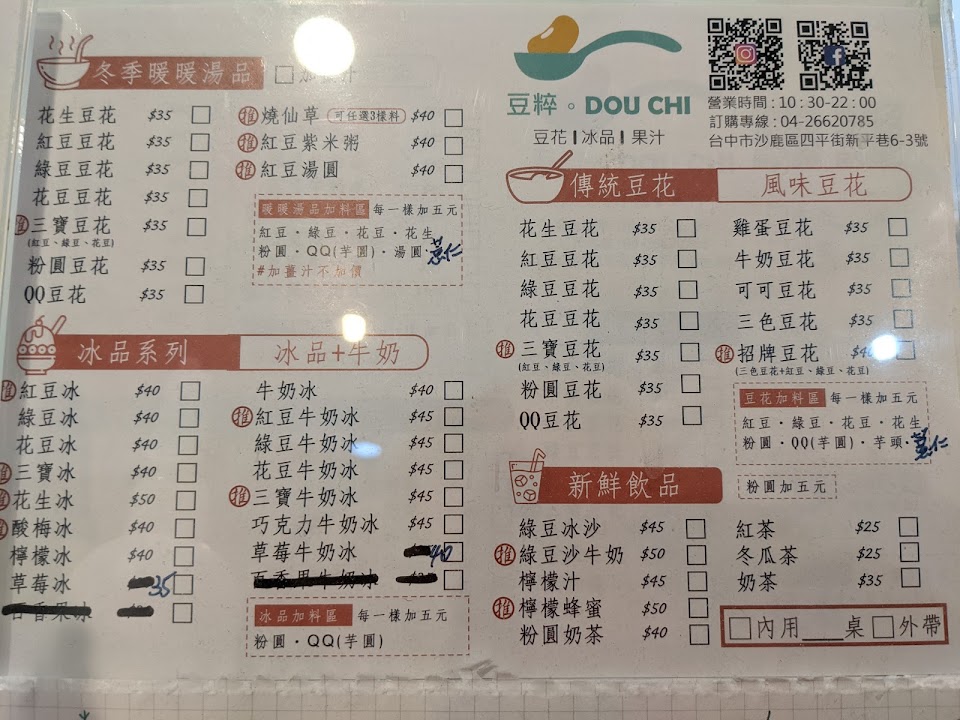 冬季暖暖湯品
花生豆花 $35
紅豆豆花 $35
綠豆豆花 $35
花豆豆花 $35
推 三寶豆花 $35
(紅豆、綠豆、花豆)
粉圓豆花 $35
QQ豆花 $35
推 燒仙草 可任選3樣料 $40
推 紅豆紫米粥 $40
推 紅豆湯圓 $40
暖暖湯品加料區 每一樣加五元
紅豆・綠豆・花豆・花生
粉圓・QQ(芋圓)・湯圓・薏仁
#加薑汁不加價
豆粹。DOU CHI
豆花|冰品|果汁
營業時間:10:30-22:00
訂購專線:04-26620785
台中市沙鹿區四平街新平巷6-3號
傳統豆花
花生豆花 $35
紅豆豆花 $35
綠豆豆花 $35
花豆豆花 $35
推 三寶豆花 $35
(紅豆、綠豆、花豆)
粉圓豆花 $35
QQ豆花 $35
風味豆花
雞蛋豆花 $35
牛奶豆花 $35
可可豆花 $35
三色豆花 $35
推 招牌豆花
(三色豆花+紅豆、綠豆、花豆)
豆花加料區 每一樣加五元
紅豆・綠豆・花豆・花生
粉圓・QQ(芋圓)・芋頭・薏仁
冰品系列
推 紅豆冰 $40
綠豆冰 $40
花豆冰 $40
推 三寶冰 $40
推 花生冰 $50
推 酸梅冰 $40
檸檬冰 $40
草莓冰 35
冰品+牛奶
牛奶冰 $40
推 紅豆牛奶冰 $45
綠豆牛奶冰 $45
花豆牛奶冰 $45
推 三寶牛奶冰 $45
巧克力牛奶冰 $45
草莓牛奶冰 40
百香果牛奶冰
冰品加料區 每一樣加五元
粉圓・QQ(芋圓)
新鮮飲品
粉圓加五元
綠豆冰沙 $45
推 綠豆沙牛奶 $50
檸檬汁 $45
推 檸檬蜂蜜 $50
粉圓奶茶 $40
紅茶 $25
冬瓜茶 $25
奶茶 $35
內用___桌 外帶